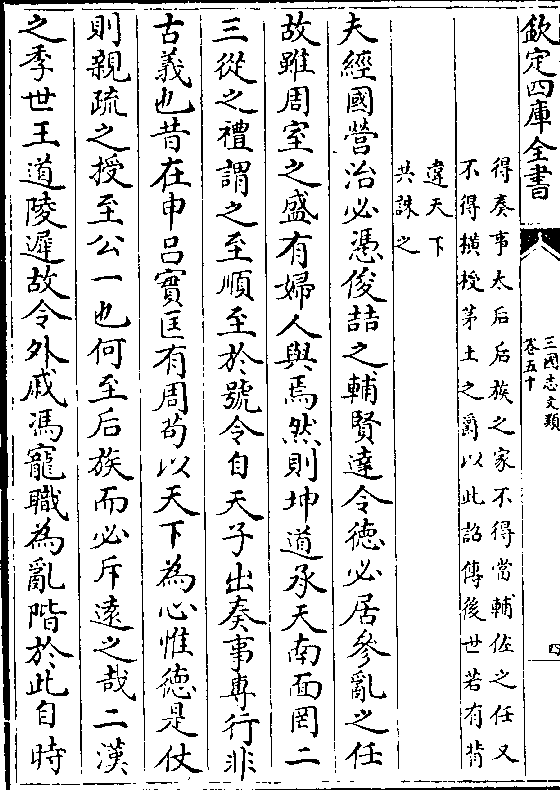 欽定四庫全書
三國志文類
卷五十
四
得奏事太后后族之家不得當輔佐之任又
不得橫授茅土之爵以此詔傳後世若有背
違天下
共誅之
夫經國營治必憑俊喆之輔賢達令德必居參亂之任
故雖周室之盛有婦人與焉然則坤道承天南面罔二
三從之禮謂之至順至於號令自天子出奏事專行非
古義也昔在申吕實匡有周苟以天下為心惟德是仗
則親疏之授至公一也何至后族而必斥遠之哉二漢
之季世王道陵遲故令外戚馮寵職為亂階於此自時